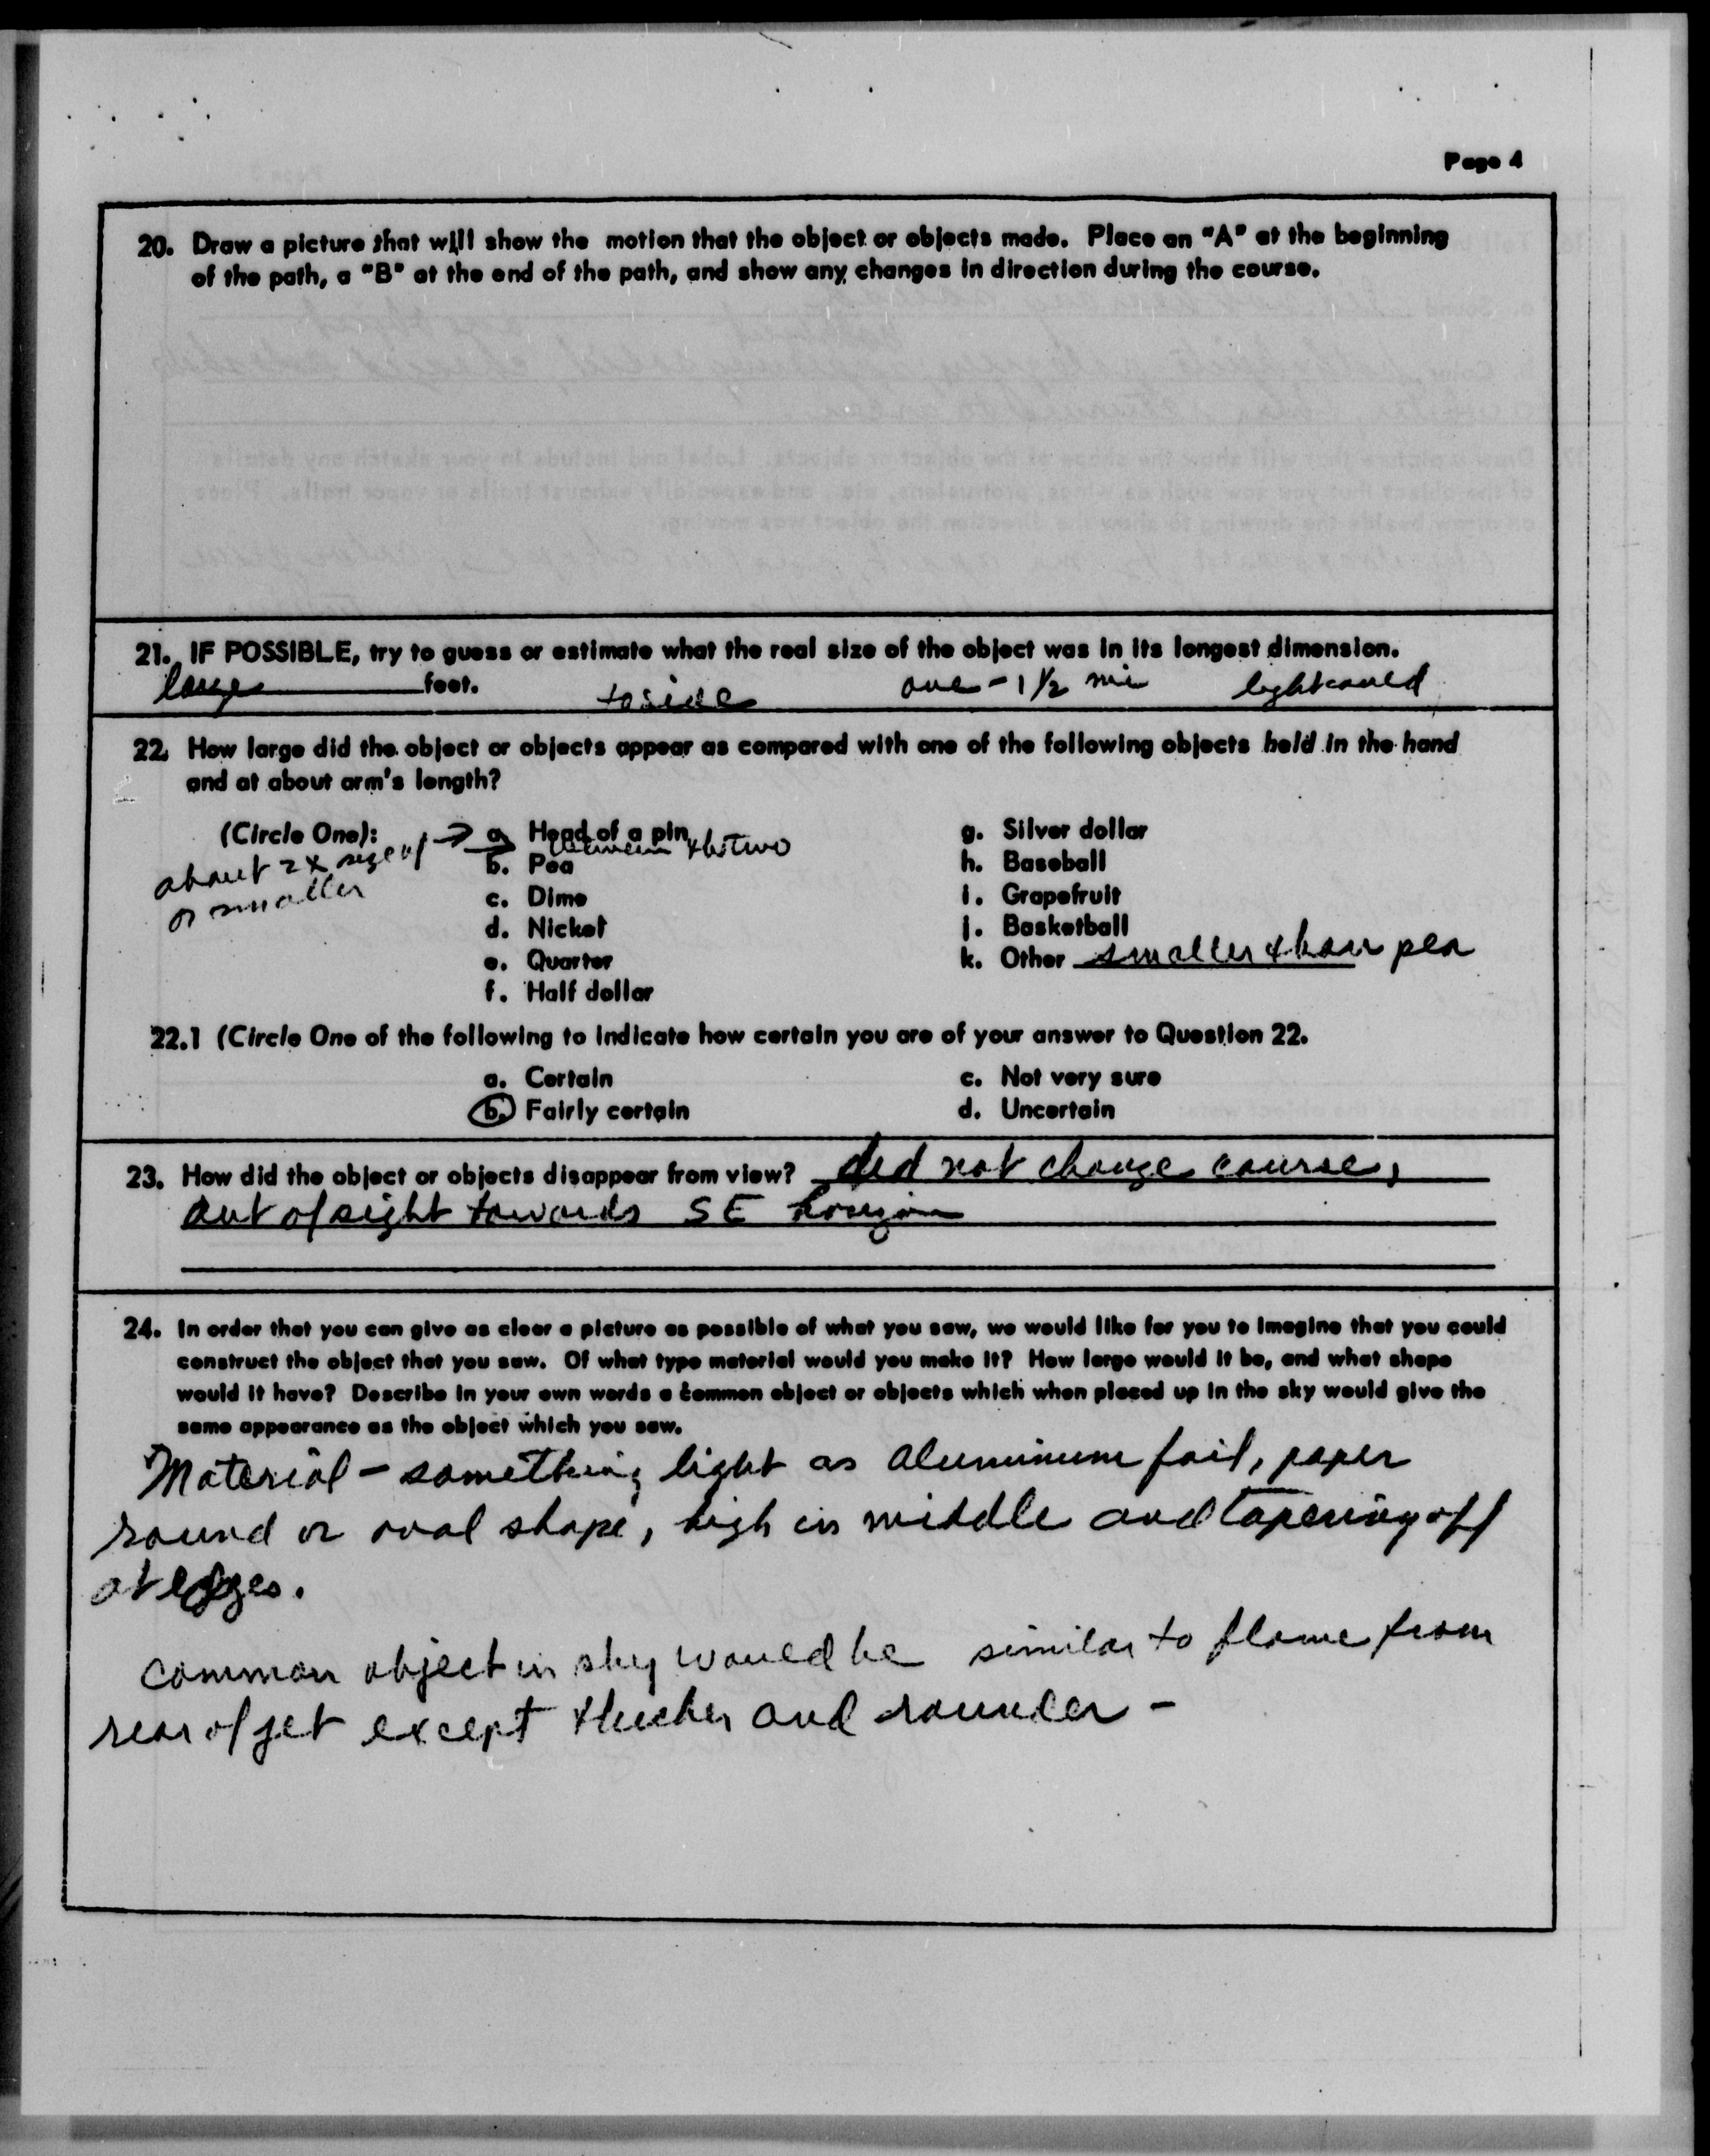 Page 4
20. Draw a picture that will show the motion that the object or objects made. Place an "A" at the beginning
of the path, a "B" at the end of the path, and show any changes in direction during the course.
21. IF POSSIBLE, try to guess or estimate what the real size of the object was in its longest dimension.
large feet. one - 1 1/2 mi
22. How large did the object or objects appear as compared with one of the following objects held in the hand
and at about arm's length?
(Circle One):
about 2x size of →
or smaller
a. Head of a pin
between the two
b. Pea
c. Dime
d. Nickel
e. Quarter
f. Half dollar
g. Silver dollar
h. Baseball
i. Grapefruit
j. Basketball
k. Other smaller than pea
22.1 (Circle One of the following to indicate how certain you are of your answer to Question 22.
a. Certain
b. Fairly certain
c. Not very sure
d. Uncertain
23. How did the object or objects disappear from view? did not change course,
out of sight towards SE horizon
24. In order that you can give as clear a picture as possible of what you saw, we would like for you to imagine that you could
construct the object that you saw. Of what type material would you make it? How large would it be, and what shape
would it have? Describe in your own words a common object or objects which when placed up in the sky would give the
same appearance as the object which you saw.
Material - something light as aluminum foil, paper
round or oval shape, high in middle and tapering off
at edges.
common object in sky would be similar to flame from
rear of jet except thicker and rounder -